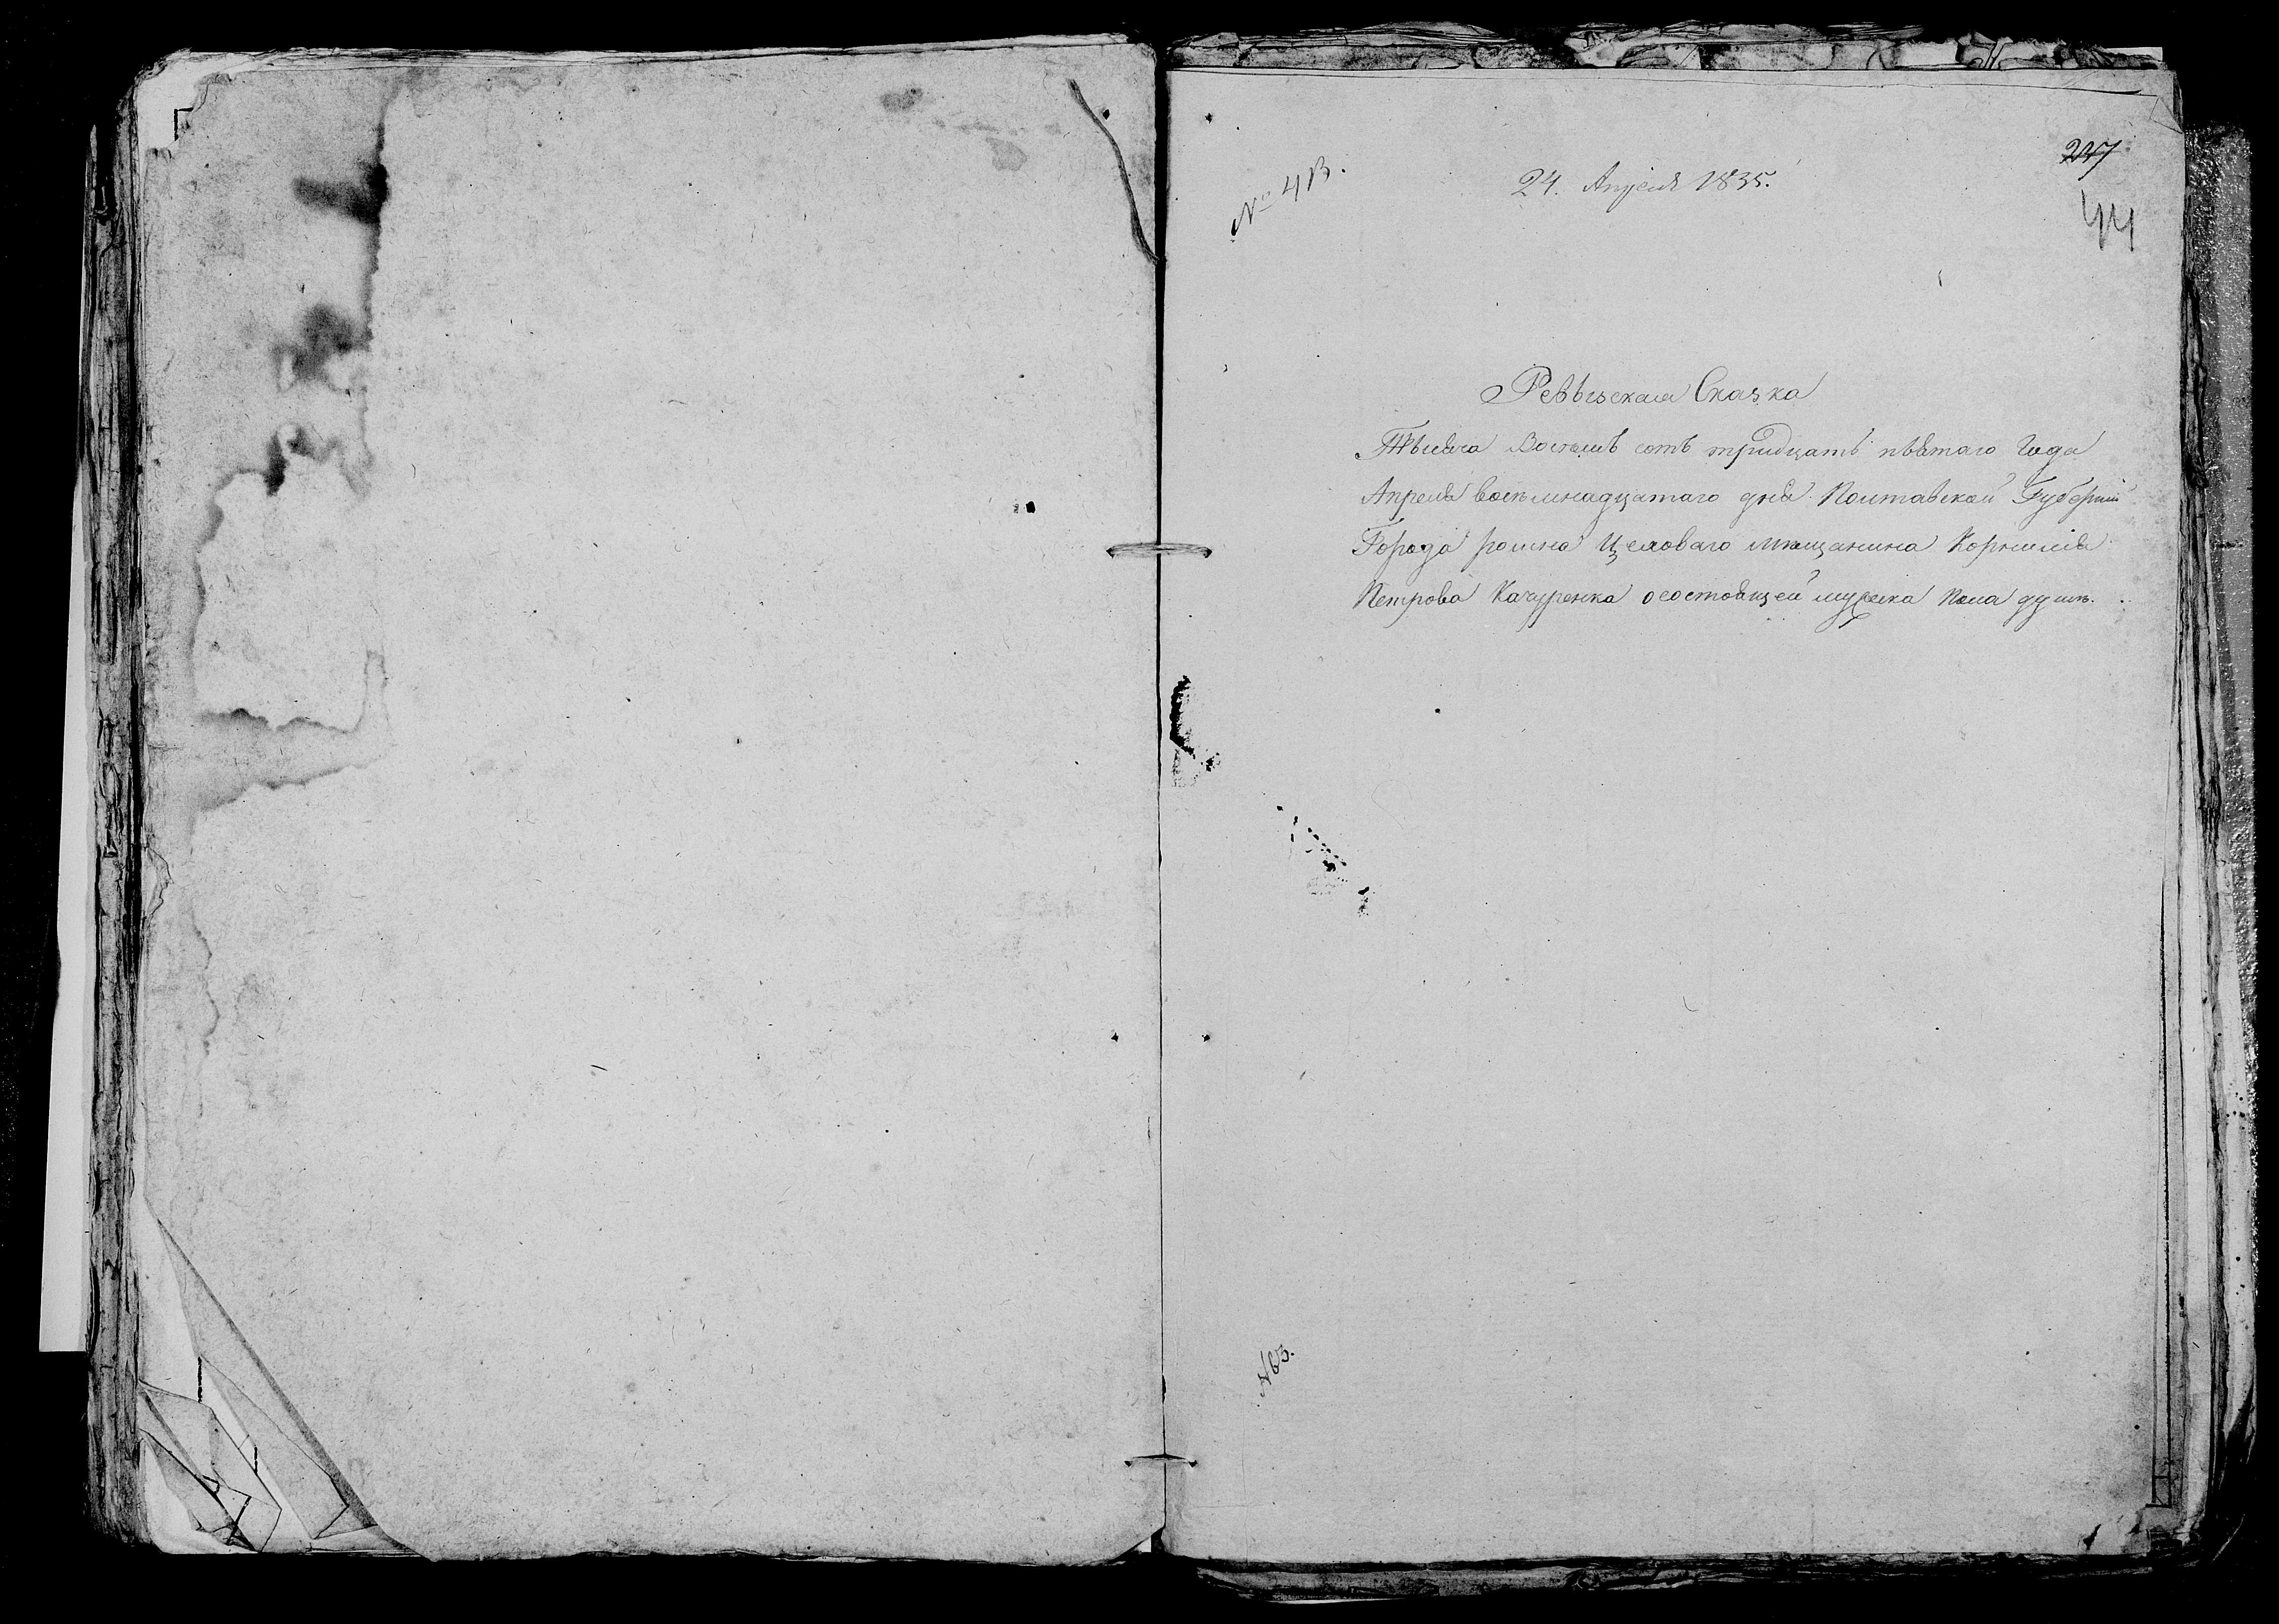 № 4 В.
24. Апреля 1835.
247
44
Ревызская Сказка
Тысяча Восемъ сотъ тридцать пятаго Года
Апреля восемнадцатаго дня Полтавской Губернии
Города ромна Цеховаго мещанина Корнилія
Петрова Качуренка осостоящей мужеска Пола душе.